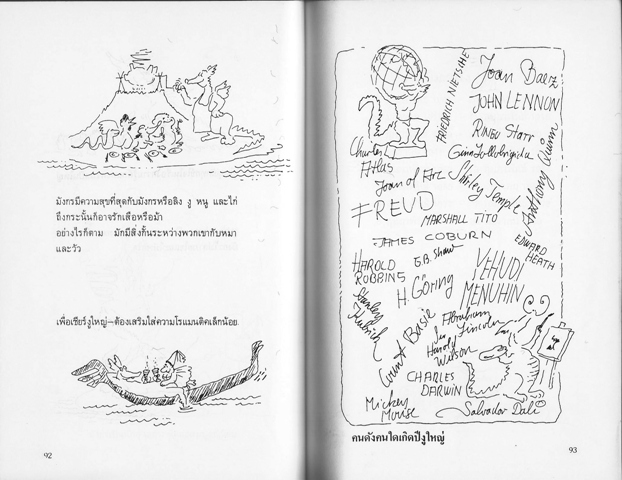 มังกรมีความสุขที่สุดกับมังกรหรือลิง งู หนู และไก่
ถึงกระนั้นก็อาจรักเสือหรือม้า
อย่างไรก็ตาม มักมีสิ่งกั้นระหว่างพวกเขากับหมา
และวัว
เพื่อเชียร์งูใหญ่—ต้องเสริมใส่ความโรแมนติคเล็กน้อย
92
FRIEDRICH NIETSCHE
Joan Baez
JOHN LENNON
RINGO Starr
Gina Lollobrigida
Anthony Quinn
Charles
Atlas
Joan of Arc
Shirley Temple
FREUD
MARSHALL TITO
JAMES COBURN
EDWARD
HEATH
HAROLD
ROBBINS
G.B. Shaw
YEHUDI
MENUHIN
H. Göring
Stanley
Kubrick
Count Basie
Abraham
Lincoln
Sir
Harold
Wilson
CHARLES
DARWIN
Mickey
Mouse
Salvador Dali
คนดังคนใดเกิดปีงูใหญ่
93